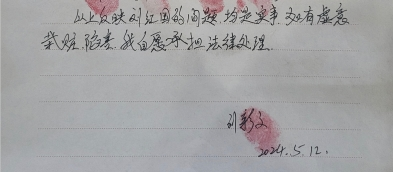 以上反映刘红国的问题,均是实事,如有虚意
栽赃.陷害.我自愿承担法律处理.
刘新文
2024.5.12.